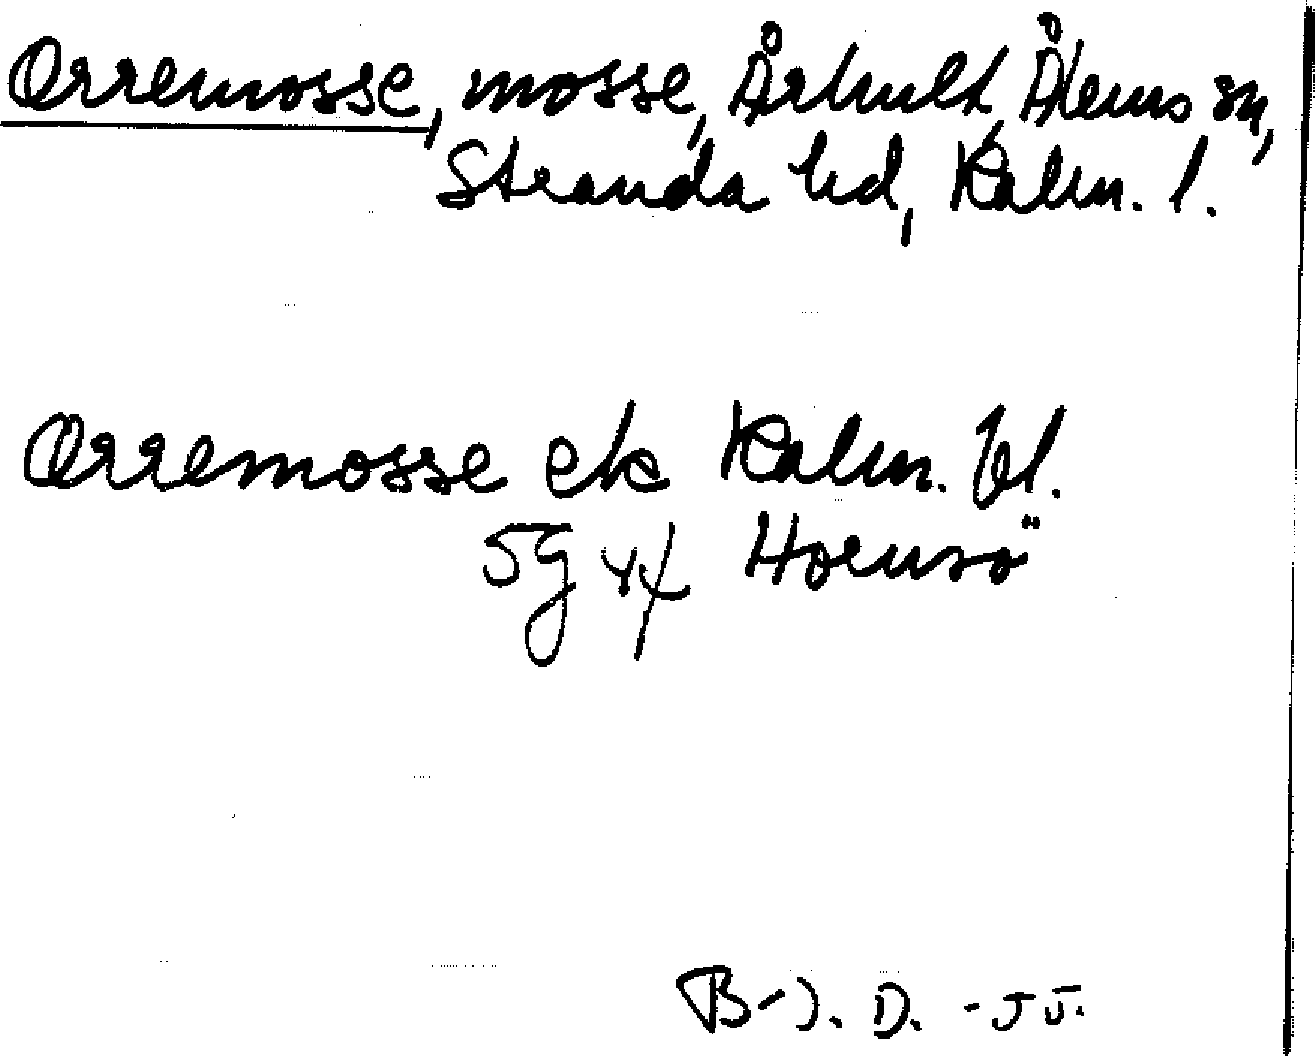 Orremosse, mosse, Århult, Ålems sn,
Stranda hd, Kalm. l.
Orremosse ek Kalm. bl.
5g Hornsö
B-J. D. -55.